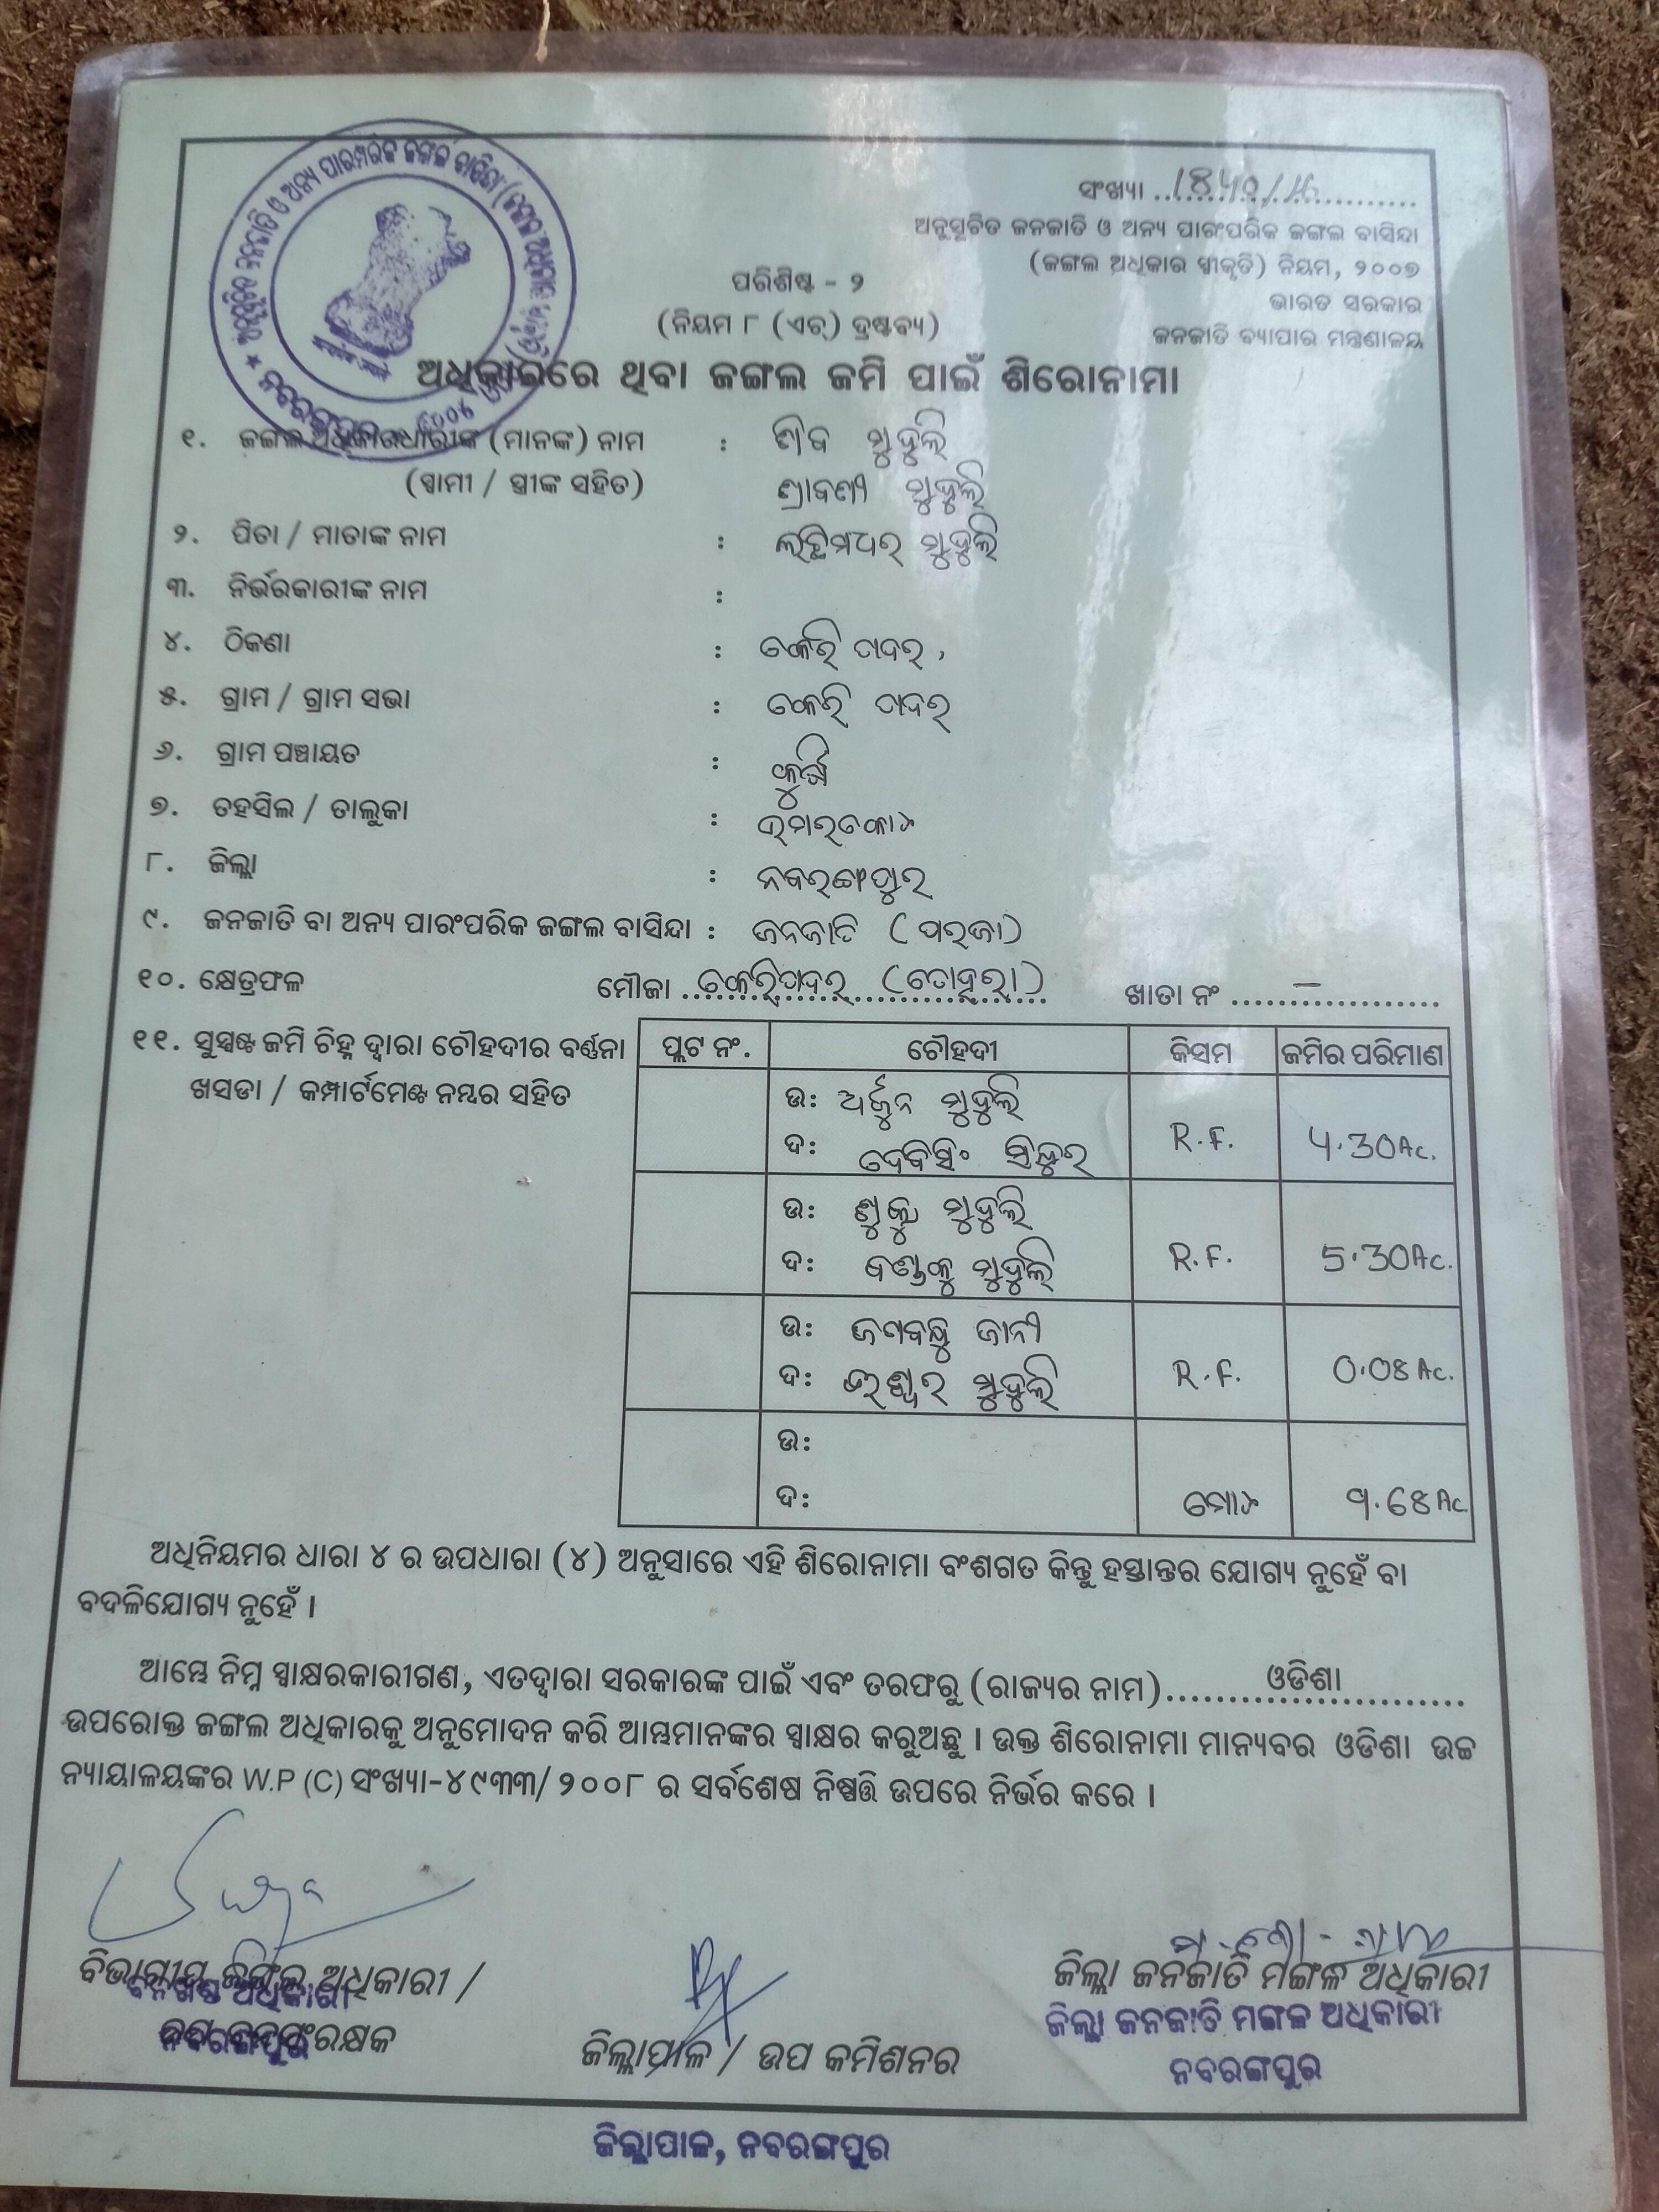 ସଂଖ୍ୟା
ଅନୁସୂଚିତ ଜନଜାତି ଓ ଅନ୍ୟ ପାରଂପରିକ ଜଙ୍ଗଲ ବାସିନ୍ଦା
(ଜଙ୍ଗଲ ଅଧିକାର ସ୍ୱୀକୃତି) ନିୟମ, ୨୦୦୭
ଭାରତ ସରକାର
ଜନଜାତି ବ୍ୟାପାର ମନ୍ତ୍ରଣାଳୟ
ପରିଶିଷ୍ଟ - ୨
(ନିୟମ ୮ (ଏଚ୍) ଦ୍ରଷ୍ଟବ୍ୟ)
ଅଧିକାରରେ ଥିବା ଜଙ୍ଗଲ ଜମି ପାଇଁ ଶିରୋନାମା
୧. ଜଙ୍ଗଲ ଅଧିକାରଧାରୀଙ୍କ (ମାନଙ୍କ) ନାମ : ଶିବ ମୁଦୁଲି
(ସ୍ୱାମୀ / ସ୍ତ୍ରୀଙ୍କ ସହିତ) ଶ୍ରାବଣୀ ମୁଦୁଲି
୨. ପିତା / ମାତାଙ୍କ ନାମ : ଲଛିମଧର ମୁଦୁଲି
୩. ନିର୍ଭରକାରୀଙ୍କ ନାମ :
୪. ଠିକଣା : କେରିପଦର,
୫. ଗ୍ରାମ / ଗ୍ରାମ ସଭା : କେରି ପଦର
୬. ଗ୍ରାମ ପଞ୍ଚାୟତ :
୭. ତହସିଲ / ତାଲୁକା : ଉମରକୋଟ
୮. ଜିଲ୍ଲା : ନବରଙ୍ଗପୁର
୯. ଜନଜାତି ବା ଅନ୍ୟ ପାରଂପରିକ ଜଙ୍ଗଲ ବାସିନ୍ଦା : ଜନଜାତି (ପରଜା)
୧୦. କ୍ଷେତ୍ରଫଳ ମୌଜା କେରିପଦର ଖାତା ନଂ –
୧୧. ସୁସ୍ପଷ୍ଟ ଜମି ଚିହ୍ନ ଦ୍ୱାରା ଚୌହଦୀର ବର୍ଣ୍ଣନା ପ୍ଲଟ ନଂ. ଚୌହଦୀ କିସମ ଜମିର ପରିମାଣ
ଖସଡା / କମ୍ପାର୍ଟମେଣ୍ଟ ନମ୍ବର ସହିତ
ଉ: ଅର୍ଜୁନ ମୁଦୁଲି
ଦ: ଦେବିସିଂ R.F. 4.30Ac.
ଉ: ଶୁକ୍ରୁ ମୁଦୁଲି
ଦ: ମୁଦୁଲି R.F. 5.30Ac.
ଉ: ଜଗବନ୍ଧୁ ଜାନୀ
ଦ: ଈଶ୍ୱର ମୁଦୁଲି R.F. 0.08Ac.
ଉ:
ଦ: ମୋଟ 9.68Ac.
ଅଧିନିୟମର ଧାରା ୪ ର ଉପଧାରା (୪) ଅନୁସାରେ ଏହି ଶିରୋନାମା ବଂଶଗତ କିନ୍ତୁ ହସ୍ତାନ୍ତର ଯୋଗ୍ୟ ନୁହେଁ ବା
ବଦଳିଯୋଗ୍ୟ ନୁହେଁ ।
ଆମ୍ଭେ ନିମ୍ନ ସ୍ୱାକ୍ଷରକାରୀଗଣ, ଏତଦ୍ୱାରା ସରକାରଙ୍କ ପାଇଁ ଏବଂ ତରଫରୁ (ରାଜ୍ୟର ନାମ) ଓଡିଶା
ଉପରୋକ୍ତ ଜଙ୍ଗଲ ଅଧିକାରକୁ ଅନୁମୋଦନ କରି ଆମ୍ଭମାନଙ୍କର ସ୍ୱାକ୍ଷର କରୁଅଛୁ । ଉକ୍ତ ଶିରୋନାମା ମାନ୍ୟବର ଓଡିଶା ଉଚ୍ଚ
ନ୍ୟାୟାଳୟଙ୍କର W.P (C) ସଂଖ୍ୟା-୪୯୩୩/୨୦୦୮ ର ସର୍ବଶେଷ ନିଷ୍ପତ୍ତି ଉପରେ ନିର୍ଭର କରେ ।
ବିଭାଗୀୟ ଜଙ୍ଗଲ ଅଧିକାରୀ /
ବନଖଣ୍ଡ ଅଧିକାରୀ
ଉପ ବନସଂରକ୍ଷକ
ନବରଙ୍ଗପୁର
ଜିଲ୍ଲାପାଳ / ଉପ କମିଶନର
ଜିଲ୍ଲା ଜନଜାତି ମଙ୍ଗଳ ଅଧିକାରୀ
ଜିଲ୍ଲା ଜନଜାତି ମଙ୍ଗଳ ଅଧିକାରୀ
ନବରଙ୍ଗପୁର
ଜିଲ୍ଲାପାଳ, ନବରଙ୍ଗପୁର